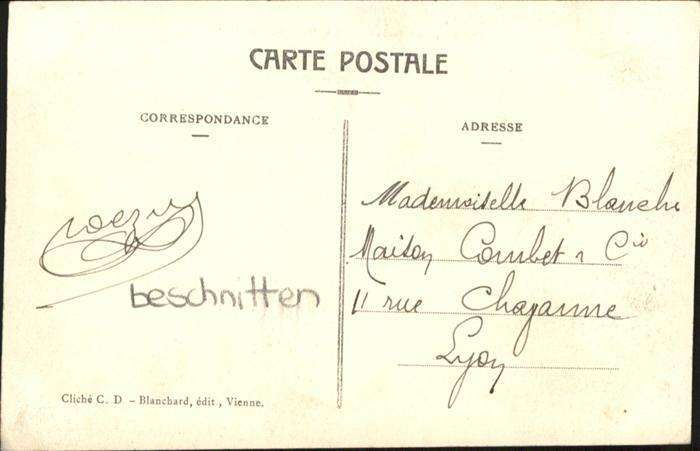 CARTE POSTALE
CORRESPONDANCE
ADRESSE
Mademoiselle Blanche
Maison Combet & Cie
11 rue Chavanne
Lyon
beschnitten
Cliché C. D - Blanchard, édit , Vienne.